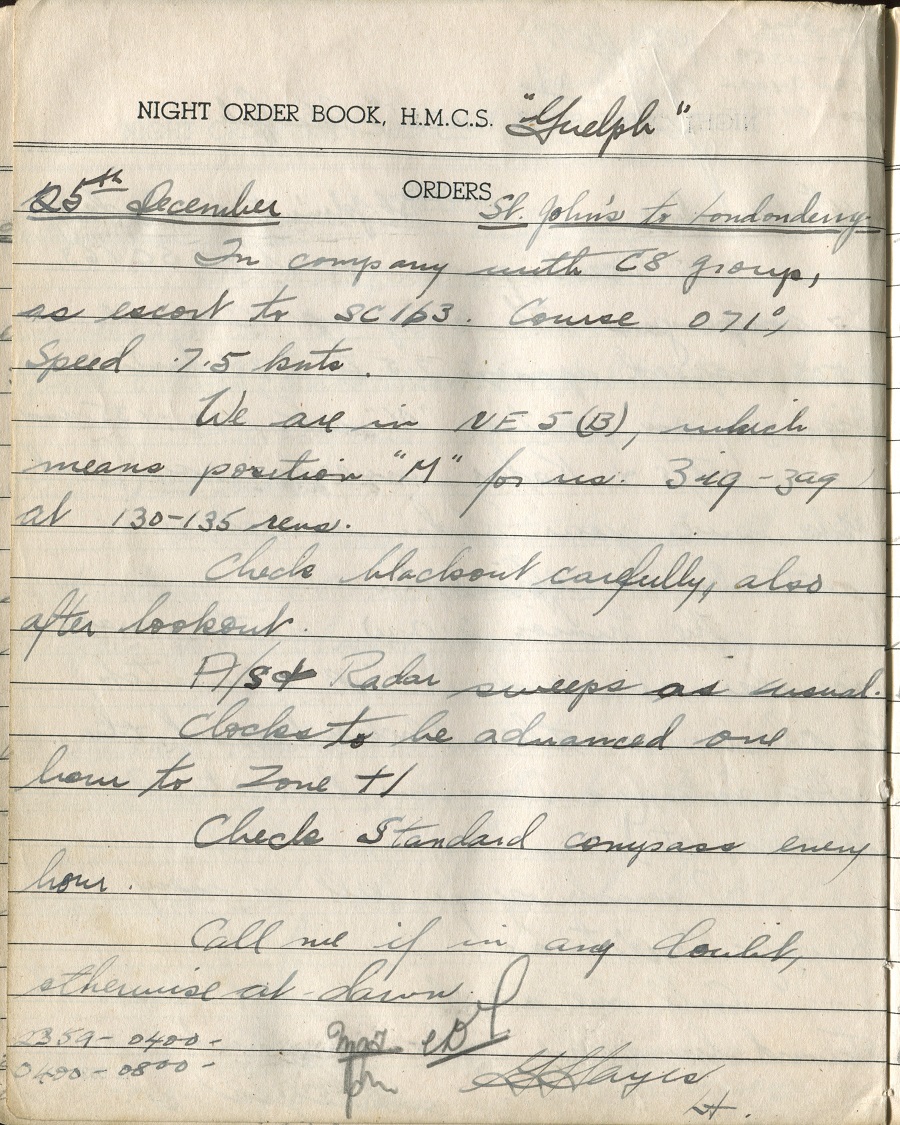 NIGHT ORDER BOOK, H.M.C.S. "Guelph"
ORDERS
25th December St. John's to Londonderry
In company with C8 group,
as escort to SC163. Course 071°,
Speed 7.5 knts.
We are in NE 5 (B), which
means position "M" for us. Zig-zag
at 130-135 revs.
Check blackout carefully, also
after lookout.
A/S & Radar sweeps as usual.
Clocks to be advanced one
hour to Zone +1
Check Standard compass every
hour.
Call me if in any doubt,
otherwise at dawn.
2359-0400-
0400-0800-
GHHayes
Lt.